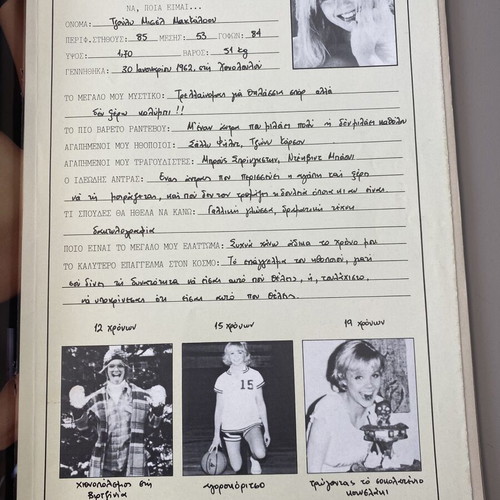 ΝΑ, ΠΟΙΑ ΕΙΜΑΙ...
ΟΝΟΜΑ: Τζούλυ Μισέλ
ΠΕΡΙΦ. ΣΤΗΘΟΥΣ: 85 ΜΕΣΗΣ: 53 ΓΟΦΩΝ: 84
ΥΨΟΣ: 1,70 ΒΑΡΟΣ: 51 kg
ΓΕΝΝΗΘΗΚΑ: 30 Ιανουαρίου 1962, στη Χονολουλού
ΤΟ ΜΕΓΑΛΟ ΜΟΥ ΜΥΣΤΙΚΟ: Τρελλαίνομαι για θαλάσσια σπορ αλλά
δεν ξέρω κολύμπι!!
ΤΟ ΠΙΟ ΒΑΡΕΤΟ ΡΑΝΤΕΒΟΥ: Μ' έναν άντρα που μιλάει πολύ ή δεν μιλάει καθόλου
ΑΓΑΠΗΜΕΝΟΙ ΜΟΥ ΗΘΟΠΟΙΟΙ: Σάλλυ Φηλντ, Τζόνυ Κάρσον
ΑΓΑΠΗΜΕΝΟΙ ΜΟΥ ΤΡΑΓΟΥΔΙΣΤΕΣ: Μπρους Σπρίνγκστην, Ντέηβιντ Μπάουι
Ο ΙΔΕΩΔΗΣ ΑΝΤΡΑΣ: Ένας άντρας που περισσεύει η αγάπη και ξέρει
να τη μοιράζεται, και που δεν τον τρομάζει η δουλειά όποια κι αν είναι
ΤΙ ΣΠΟΥΔΕΣ ΘΑ ΗΘΕΛΑ ΝΑ ΚΑΝΩ: Γαλλική γλώσσα, δραματική τέχνη
δακτυλογραφία
ΠΟΙΟ ΕΙΝΑΙ ΤΟ ΜΕΓΑΛΟ ΜΟΥ ΕΛΑΤΤΩΜΑ: Συχνά χάνω άδικα το χρόνο μου
ΤΟ ΚΑΛΥΤΕΡΟ ΕΠΑΓΓΕΛΜΑ ΣΤΟΝ ΚΟΣΜΟ: Το επάγγελμα του ηθοποιού, γιατί
σου δίνει τη δυνατότητα να είσαι αυτό που θέλεις, ή, τουλάχιστο,
να υποκρίνεσαι ότι είσαι αυτό που θέλεις.
12 χρόνων
15 χρόνων
19 χρόνων
15
χιονοπόλεμος στη
Βιρτζίνια
αγοροκόριτσο
τρώγοντας το σοκολατένιο